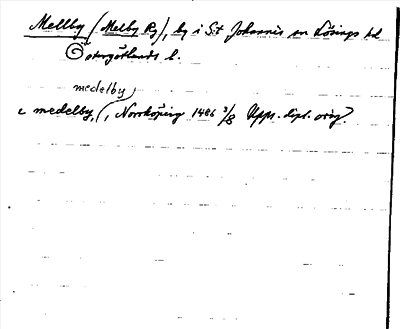 Mellby (Melby Rg), by i S:t Johannis sn Lösings hd
Östergötlands l.
medelby
c medelby, (, Norrköping 1486 3/8 Upps. dipl. orig.